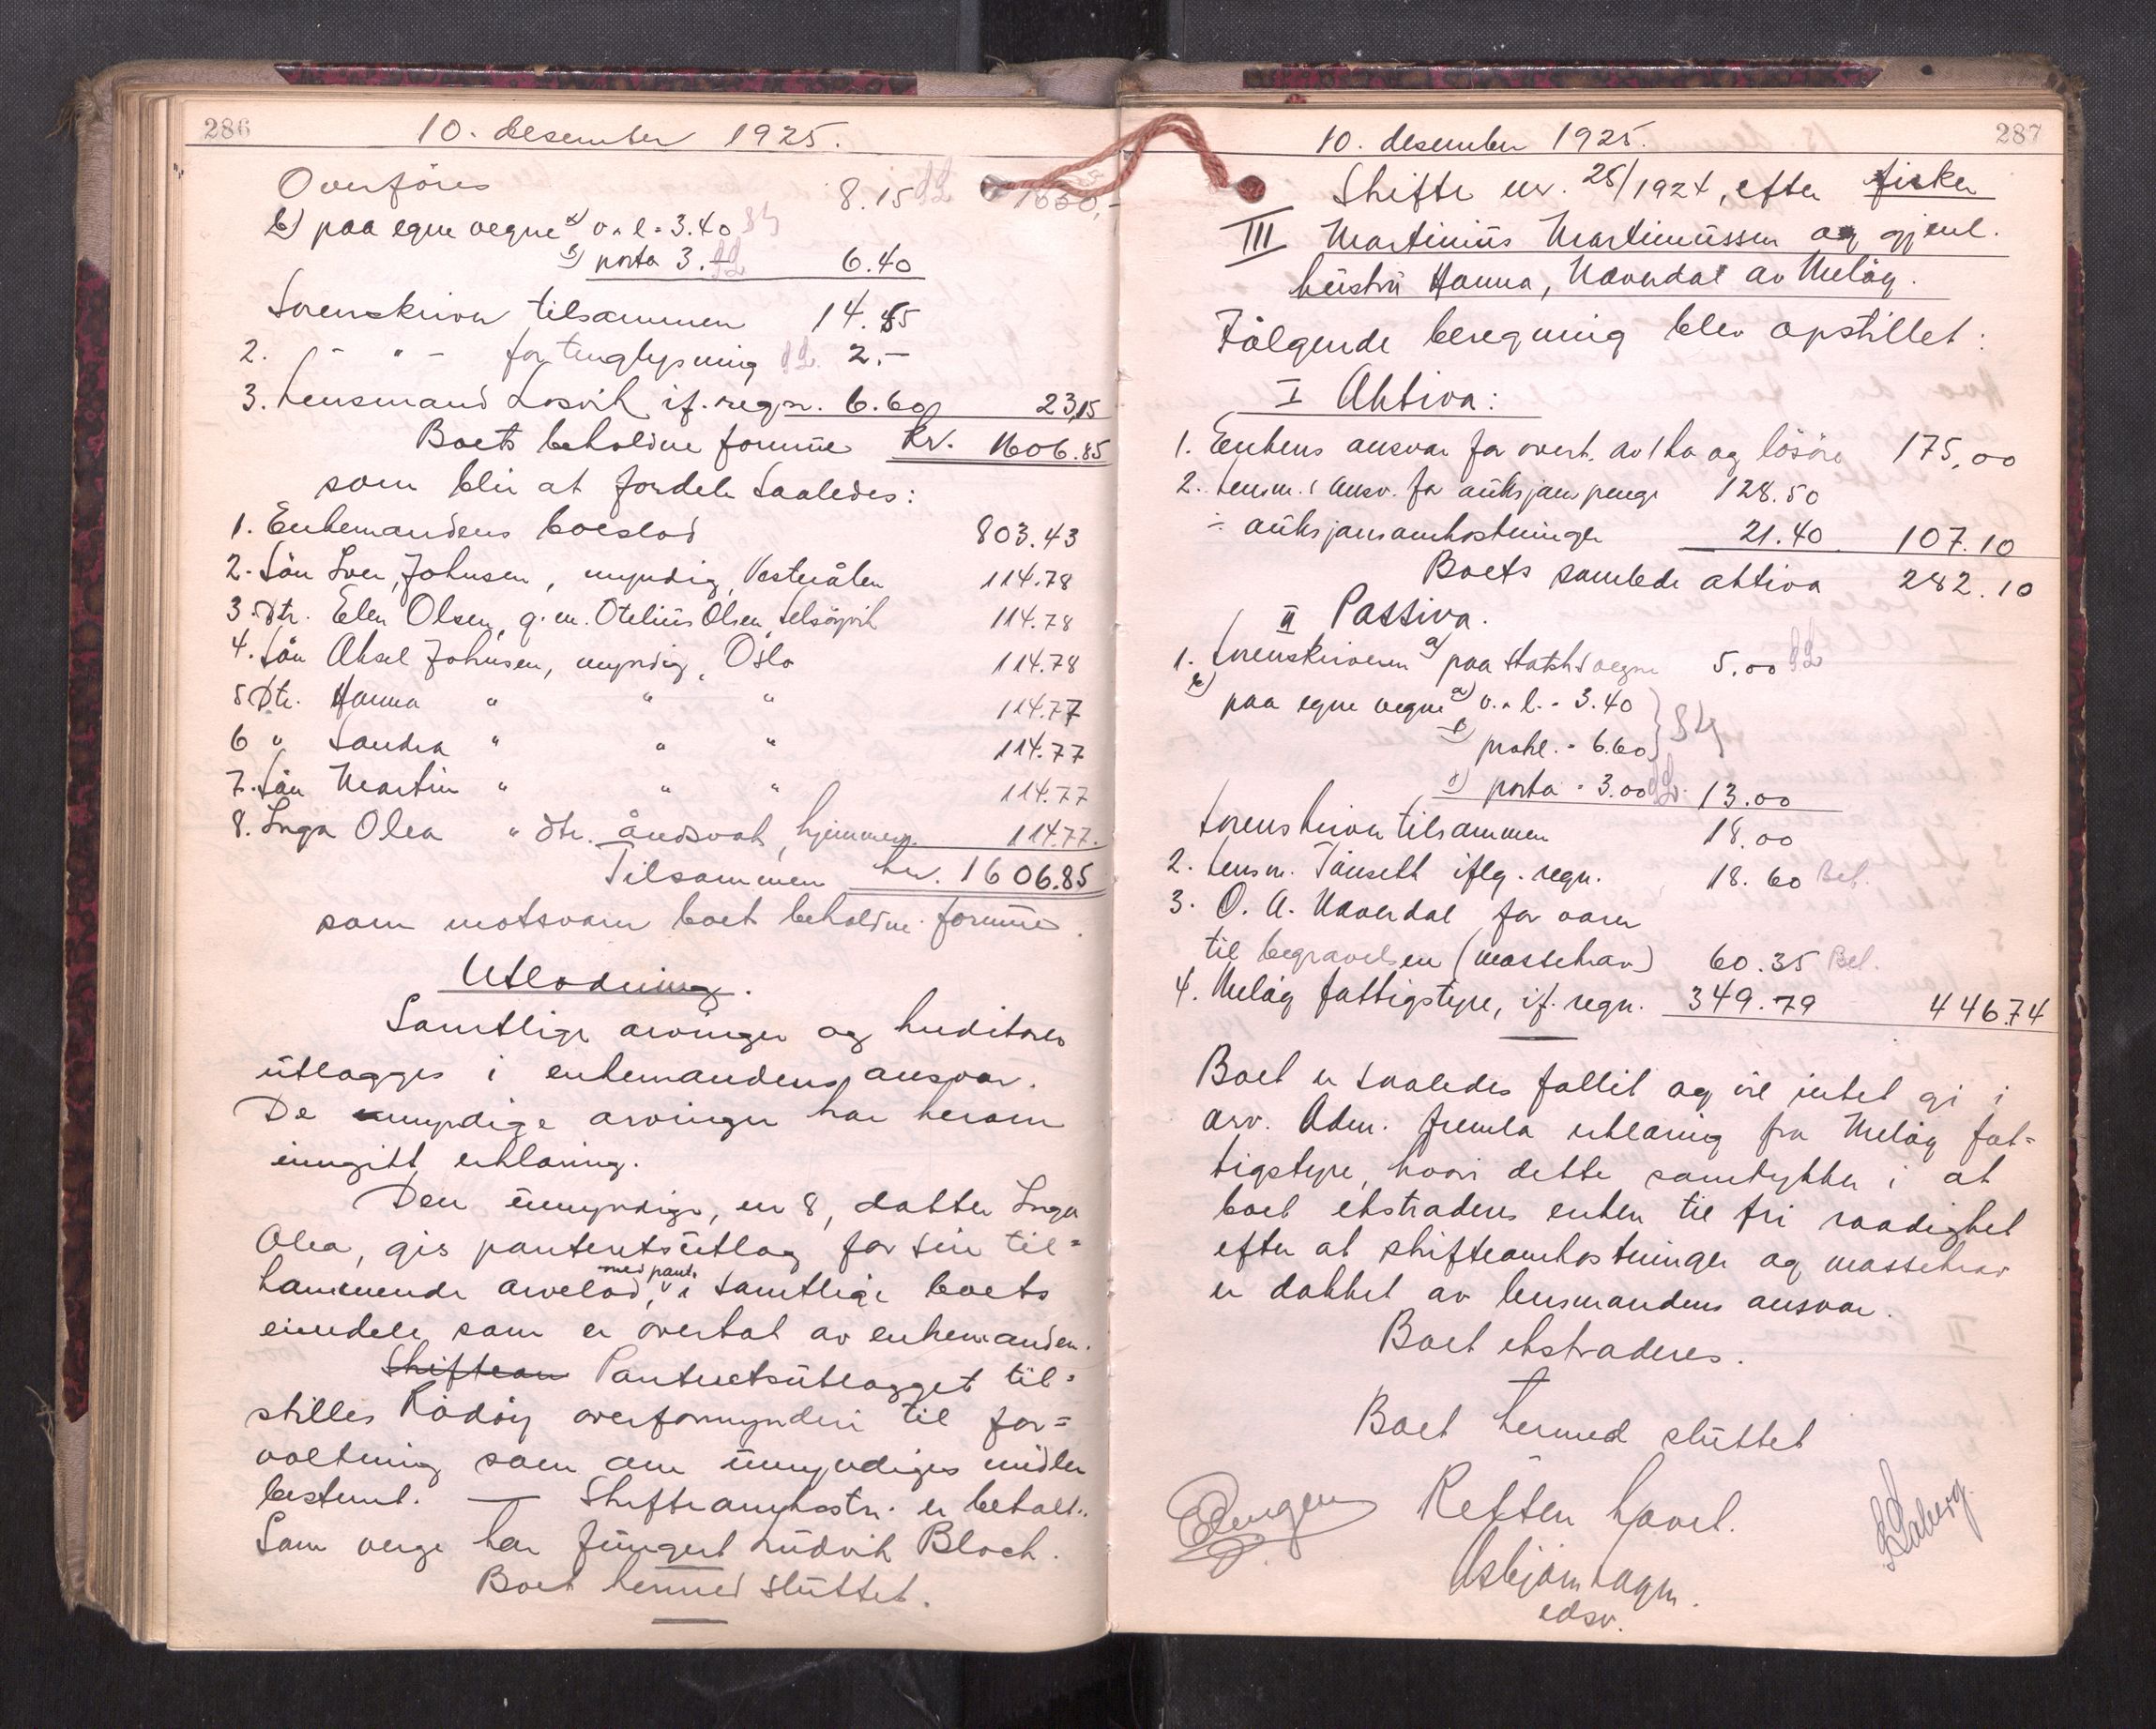 286
10. desember 1925.
Overföres 8.15 1630,-
b) paa egne vegne a) v. l. = 3.40
b) porto 3.- 6.40
Sorenskriver tilsammen 14.55
2. - " - for tinglysning 2.-
3. Lensmand Losvik if. regn. 6.60 23,15
Boets beholdne formue kr. 1606.85
som blir at fordele saaledes:
1. Enkemandens boeslod 803.43
2. Sön Iver Johnsen, myndig, Vesterålen 114.78
3. Dtr. Elen Olsen, g. m. Otelius Olsen, Selsöyvik 114.78
4. Sön Aksel Johnsen, myndig, Oslo 114.78
5 Dtr. Hanna " " " 114.77
6 " Sandra " " " 114.77
7. Sön Martin " " " 114.77
8. Inga Olea " dtr. åndsvak, hjemmev. 114.77.
Tilsammen kr. 1606.85
som motsvarer boets beholdne formue.
Utlodning.
Samtlige arvinger og kreditorer
utlægges i enkemandens ansvar.
De myndige arvinger har herom
inngitt erklæring.
Den umyndige, nr 8, datter Inga
Olea, gis panteretsutlæg for sin til=
kommende arvelod, med pant i samtlige boets
eiendele som er overtat av enkemanden.
Skifteom Panteretsutlægget til=
stilles Rödöy overformynderi til for=
valtning som om umyndiges midler
bestemt. — Skifteomkostn. er betalt.
Som verge har fungert Ludvik Bloch.
Boet hermed sluttet.
287
10. desember 1925.
Skifte nr. 25/1924, efter fisker
III Martinius Martinussen og gjenl.
hustru Hanna, Naverdal av Meløy.
Følgende beregning blev opstillet:
I Aktiva:
1. Enkens ansvar for overt. av 1 ko og lösöre 175,00
2. Lensm.s ansv. for auksjonspenge 128.50
÷ auksjonsomkostninger 21.40 107.10
Boets samlede aktiva 282.10
II Passiva.
1. Sorenskriveren a) paa Statens vegne 5.00
b) paa egne vegne a) v. l. = 3.40
b) prokl. = 6.60
c) porto = 3.00 13.00
Sorenskriver tilsammen 18.00
2. Lensm. Tönseth iflg. regn. 18.60 Bet.
3. O. A. Naverdal for varer
til begravelsen (massekrav) 60.35 Bet.
4. Meløy fattigstyre, if. regn. 349.79 446.74
Boet er saaledes fallit og vil intet gi i
arv. Adm. fremla erklæring fra Meløy fat=
tigstyre, hvori dette samtykker i at
boet ekstraderes enken til fri raadighet
efter at skifteomkostninger og massekrav
er dækket av lensmandens ansvar.
Boet ekstraderes.
Boet hermed sluttet
Retten hævet.
Asbjörn Hagen.
edsv.